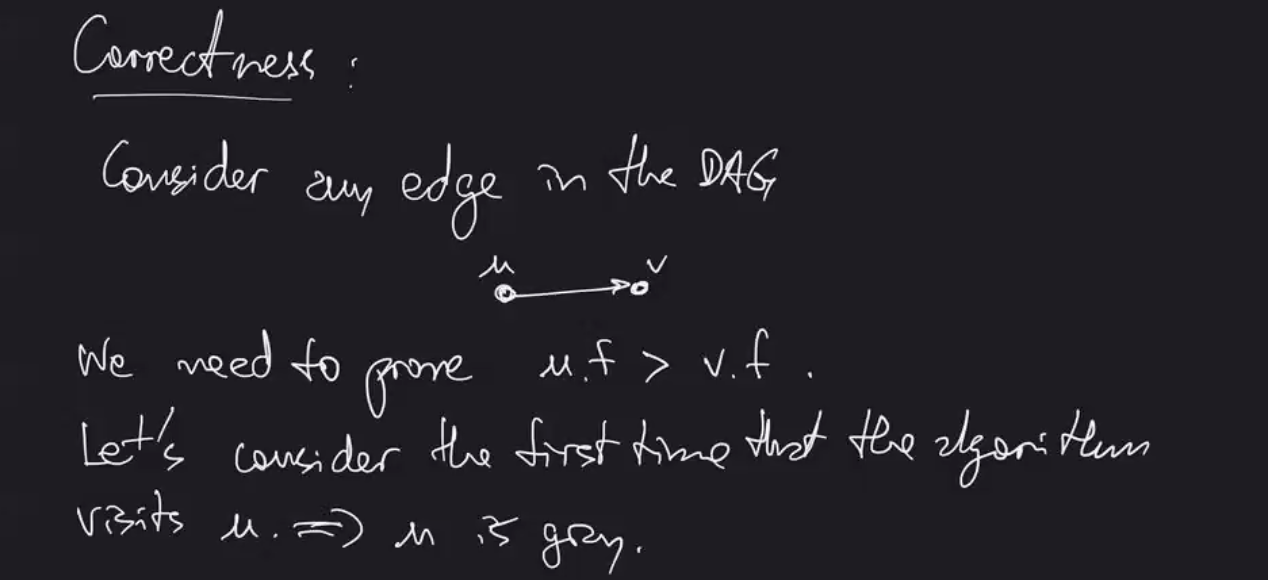 Correctness :
Consider any edge in the DAG
u v
We need to prove u.f > v.f .
Let's consider the first time that the algorithm
visits u. => u is gray.